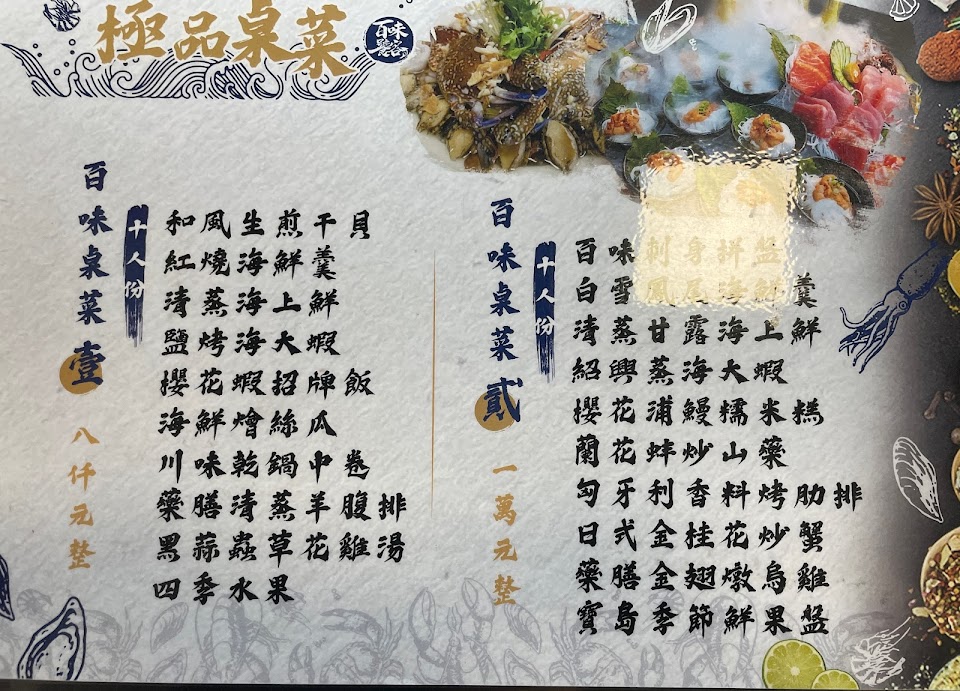 極品桌菜
百味饕客
百味桌菜壹
十人份
八仟元整
和風生煎干貝
紅燒海鮮羹
清蒸海上鮮
鹽烤海大蝦
櫻花蝦招牌飯
海鮮燴絲瓜
川味乾鍋中卷
藥膳清蒸羊腹排
黑蒜蟲草花雞湯
四季水果
百味桌菜貳
十人份
一萬元整
百味刺身拼盤
白雪 羹
清蒸甘露海上鮮
紹興蒸海大蝦
櫻花浦鰻糯米糕
蘭花蚌炒山藥
匈牙利香料烤肋排
日式金桂花炒蟹
藥膳金翅燉烏雞
寶島季節鮮果盤